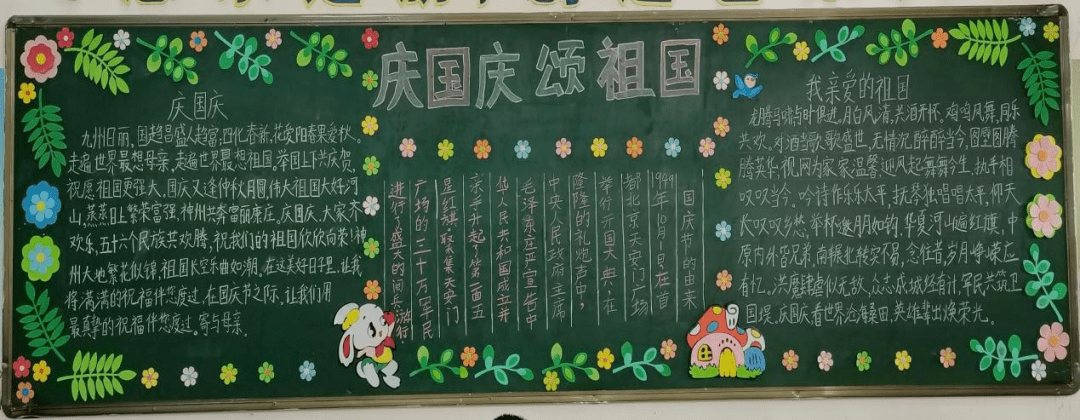 庆国庆 颂祖国
庆国庆
九州日丽,国趋昌盛人趋富,四化春新,花变阳春果变秋。
走遍世界最想母亲,走遍世界最想祖国。举国上下共庆贺,
祝愿祖国更强大。国庆又逢仲秋月圆,伟大祖国大好河
山,蒸蒸日上繁荣富强,神州共奔富丽康庄。庆国庆,大家齐
欢乐,五十六个民族共欢腾,祝我们的祖国欣欣向荣!神
州大地繁花似锦,祖国长空乐曲如潮。在这美好日子里,让我
将满满的祝福伴您度过。在国庆节之际,让我们用
最真挚的祝福伴您度过,寄与母亲。
国庆节的由来
1949年10月1日,在首
都北京天安门广场
举行开国大典,在
隆隆的礼炮声中,
中央人民政府主席
毛泽东庄严宣告中
华人民共和国成立并
亲手升起了第一面五
星红旗。聚集天安门
广场的三十万军民
进行了盛大的阅兵和游行
我亲爱的祖国
龙腾马啸与时俱进,月白风清,共酒开怀,鸡鸣凤舞,同乐
共欢,对酒当歌,歌盛世,无情况,醉醉当今,图壁图腾
腾英华,视网为家,家温馨,迎风起舞舞今生,执手相
叹叹当今,吟诗作乐乐太平,抚琴独唱唱太平,仰天
长叹叹乡愁,举杯邀朋如钩,华夏河山遍红旗,中
原内外皆兄弟,南辗北转实不易,念往昔,岁月峥嵘应
有忆。洪魔肆虐似无敌,众志成城经有计,军民共筑卫
国堤。庆国庆看世界沧海桑田,英雄辈出焕荣光。